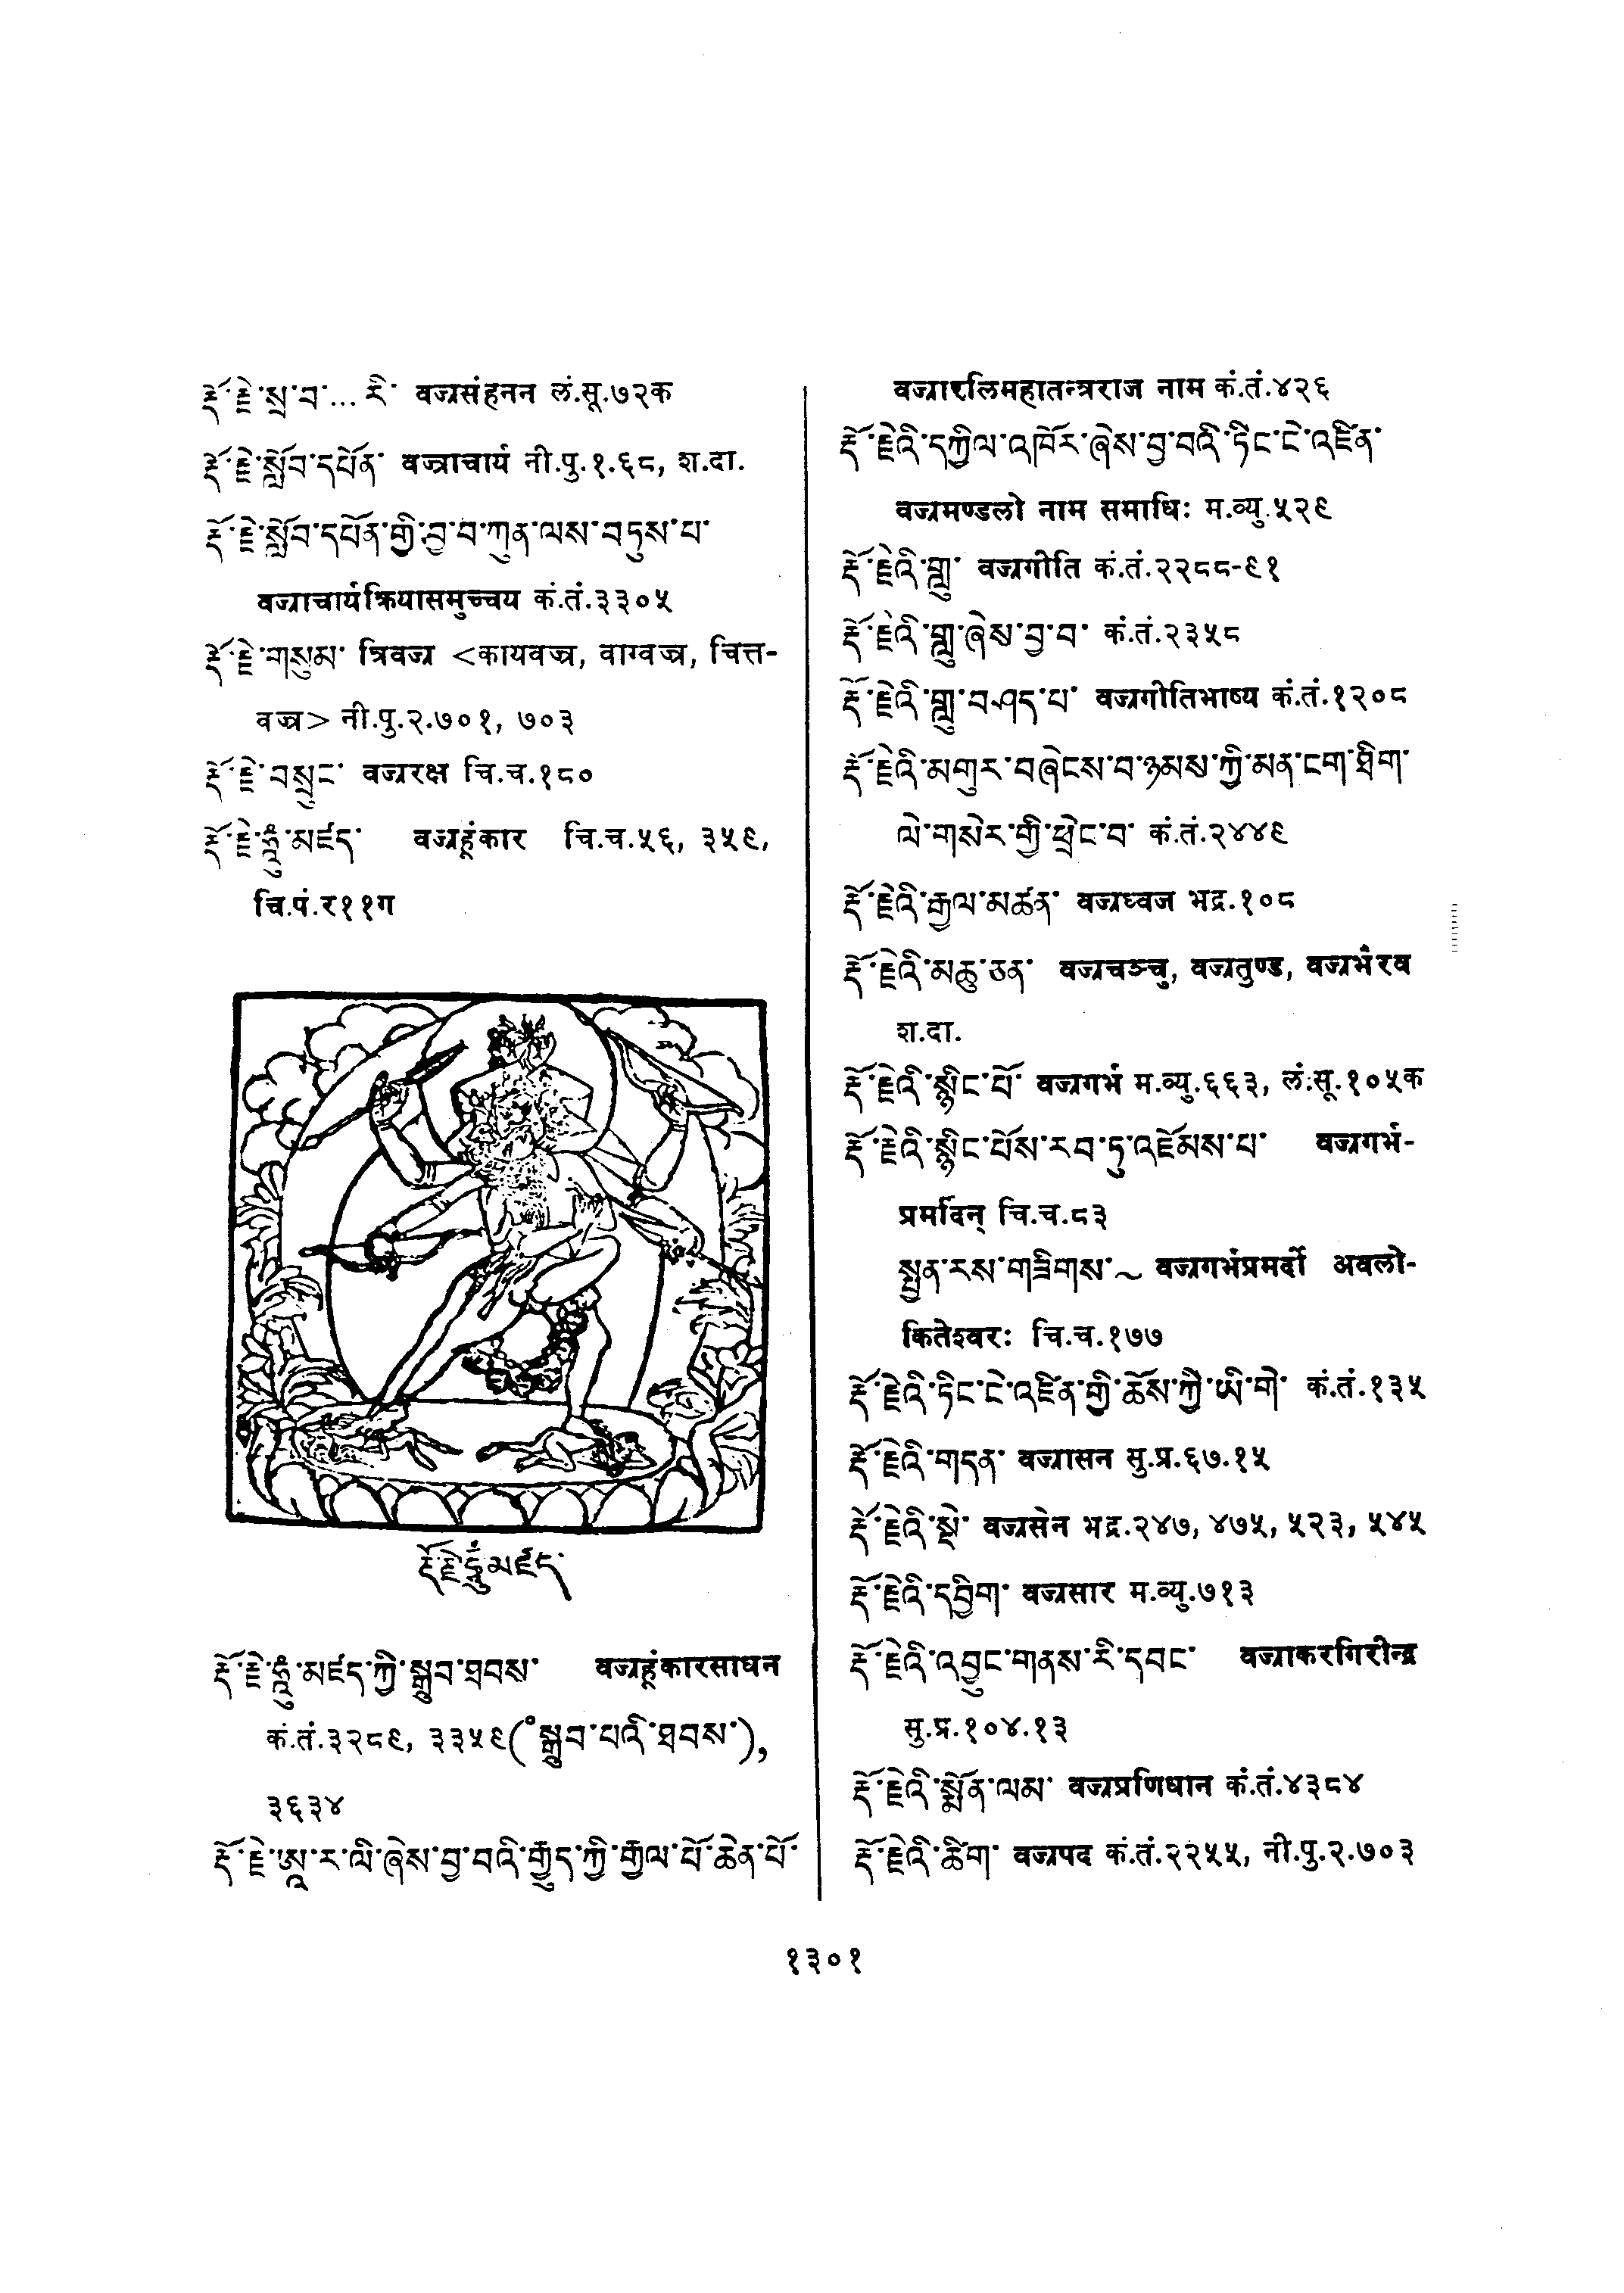 རྡོ་རྗེ་སྲ་བ་...རི་ वज्रसंहनन लं.सू.७२क
རྡོ་རྗེ་སློབ་དཔོན་ वज्राचार्य नी.पु.१.६८, श.दा.
རྡོ་རྗེ་སློབ་དཔོན་གྱི་བྱ་བ་ཀུན་ལས་བཏུས་པ་
वज्राचार्यक्रियासमुच्चय कं.तं.३३०५
རྡོ་རྗེ་གསུམ་ त्रिवज्र <कायवज्र, वाग्वज्र, चित्त-
वज्र> नी.पु.२.७०१, ७०३
རྡོ་རྗེ་བསྲུང་ वज्ररक्ष चि.च.१८०
རྡོ་རྗེ་ཧཱུྃ་མཛད་ वज्रहूंकार चि.च.५६, ३५९,
चि.पं.र११ग
རྡོ་རྗེ་ཧཱུྃ་མཛད་
རྡོ་རྗེ་ཧཱུྃ་མཛད་ཀྱི་སྒྲུབ་ཐབས་ वज्रहूंकारसाधन
कं.तं.३२८९, ३३५९(°སྒྲུབ་པའི་ཐབས་),
३६३४
རྡོ་རྗེ་ཨཱ་ར་ལི་ཞེས་བྱ་བའི་རྒྱུད་ཀྱི་རྒྱལ་པོ་ཆེན་པོ་
वज्रारलिमहातन्त्रराज नाम कं.तं.४२६
རྡོ་རྗེའི་དཀྱིལ་འཁོར་ཞེས་བྱ་བའི་ཏིང་ངེ་འཛིན་
वज्रमण्डलो नाम समाधिः म.व्यु.५२९
རྡོ་རྗེའི་གླུ་ वज्रगीति कं.तं.२२८८-९१
རྡོ་རྗེའི་གླུ་ཞེས་བྱ་བ་ कं.तं.२३५८
རྡོ་རྗེའི་གླུ་བཤད་པ་ वज्रगीतिभाष्य कं.तं.१२०८
རྡོ་རྗེའི་མགུར་བཞེངས་བ་ཉམས་ཀྱི་མན་ངག་ཐིག་
ལེ་གསེར་གྱི་ཕྲེང་བ་ कं.तं.२४४९
རྡོ་རྗེའི་རྒྱལ་མཚན་ वज्रध्वज भद्र.१०८
རྡོ་རྗེའི་མཆུ་ཅན་ वज्रचञ्चु, वज्रतुण्ड, वज्रभैरव
श.दा.
རྡོ་རྗེའི་སྙིང་པོ་ वज्रगर्भ म.व्यु.६६३, लं.सू.१०५क
རྡོ་རྗེའི་སྙིང་པོས་རབ་ཏུ་འཇོམས་པ་ वज्रगर्भ-
प्रमर्दिन् चि.च.८३
སྤྱན་རས་གཟིགས་~ वज्रगर्भप्रमर्दी अवलो-
कितेश्वरः चि.च.१७७
རྡོ་རྗེའི་ཏིང་ངེ་འཛིན་གྱི་ཆོས་ཀྱི་ཡི་གེ་ कं.तं.१३५
རྡོ་རྗེའི་གདན་ वज्रासन सु.प्र.६७.१५
རྡོ་རྗེའི་སྡེ་ वज्रसेन भद्र.२४७, ४७५, ५२३, ५४५
རྡོ་རྗེའི་དབྱིག་ वज्रसार म.व्यु.७१३
རྡོ་རྗེའི་འབྱུང་གནས་རི་དབང་ वज्राकरगिरीन्द्र
सु.प्र.१०४.१३
རྡོ་རྗེའི་སྨོན་ལམ་ वज्रप्रणिधान कं.तं.४३८४
རྡོ་རྗེའི་ཚིག་ वज्रपद कं.तं.२२५५, नी.पु.२.७०३
१३०१